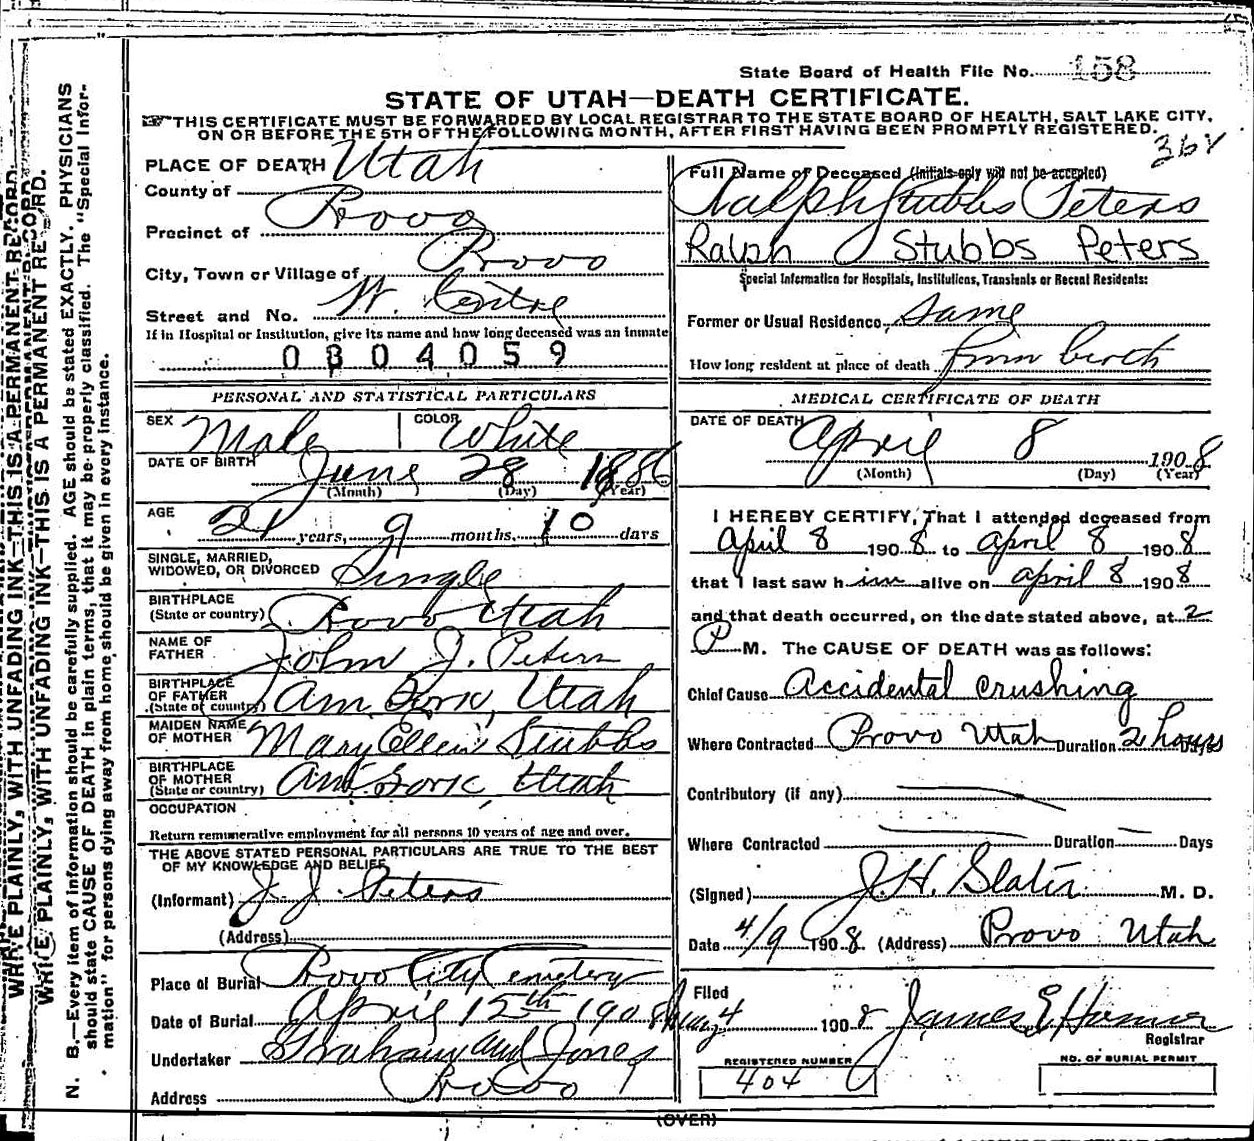 State Board of Health File No. 158
STATE OF UTAH—DEATH CERTIFICATE.
THIS CERTIFICATE MUST BE FORWARDED BY LOCAL REGISTRAR TO THE STATE BOARD OF HEALTH, SALT LAKE CITY,
ON OR BEFORE THE 5TH OF THE FOLLOWING MONTH, AFTER FIRST HAVING BEEN PROMPTLY REGISTERED.
PLACE OF DEATH
County of Utah
Precinct of Provo
City, Town or Village of Provo
Street and No. W. Centre
If in Hospital or Institution, give its name and how long deceased was an inmate
0304059
PERSONAL AND STATISTICAL PARTICULARS
SEX Male COLOR White
DATE OF BIRTH June 28 1886
(Month) (Day) (Year)
AGE 21 years, 9 months, 10 days
SINGLE, MARRIED,
WIDOWED, OR DIVORCED Single
BIRTHPLACE
(State or country) Provo Utah
NAME OF
FATHER John J. Peters
BIRTHPLACE
OF FATHER
(State or country) Am. Fork, Utah
MAIDEN NAME
OF MOTHER Mary Ellen Stubbs
BIRTHPLACE
OF MOTHER
(State or country) Am. Fork, Utah
OCCUPATION
Return remunerative employment for all persons 10 years of age and over.
THE ABOVE STATED PERSONAL PARTICULARS ARE TRUE TO THE BEST
OF MY KNOWLEDGE AND BELIEF
(Informant) J. J. Peters
(Address)
Place of Burial Provo City Cemetery
Date of Burial April 12th 1908
Undertaker Graham and Jones
Address Provo
368
Full Name of Deceased (Initials only will not be accepted)
Ralph Stubbs Peters
Ralph Stubbs Peters
Special Information for Hospitals, Institutions, Transients or Recent Residents:
Former or Usual Residence, Same
How long resident at place of death from birth
MEDICAL CERTIFICATE OF DEATH
DATE OF DEATH April 8 1908
(Month) (Day) (Year)
I HEREBY CERTIFY, That I attended deceased from
April 8 1908 to April 8, 1908
that I last saw him alive on April 8 1908
and that death occurred, on the date stated above, at 2
P M. The CAUSE OF DEATH was as follows:
Chief Cause Accidental crushing
Where Contracted Provo Utah Duration 2 hours
Contributory (if any)
Where Contracted Duration Days
(Signed) J.H. Slater M. D.
Date 4/9 1908 (Address) Provo Utah
Filed
May 4 1908 James E Hamer
Registrar
REGISTERED NUMBER
404
NO. OF BURIAL PERMIT
(OVER)
WRITE PLAINLY, WITH UNFADING INK—THIS IS A PERMANENT RECORD.
WRITE PLAINLY, WITH UNFADING INK—THIS IS A PERMANENT RECORD.
N. B.—Every item of information should be carefully supplied. AGE should be stated EXACTLY. PHYSICIANS
should state CAUSE OF DEATH in plain terms, that it may be properly classified. The "Special Infor-
mation" for persons dying away from home should be given in every instance.